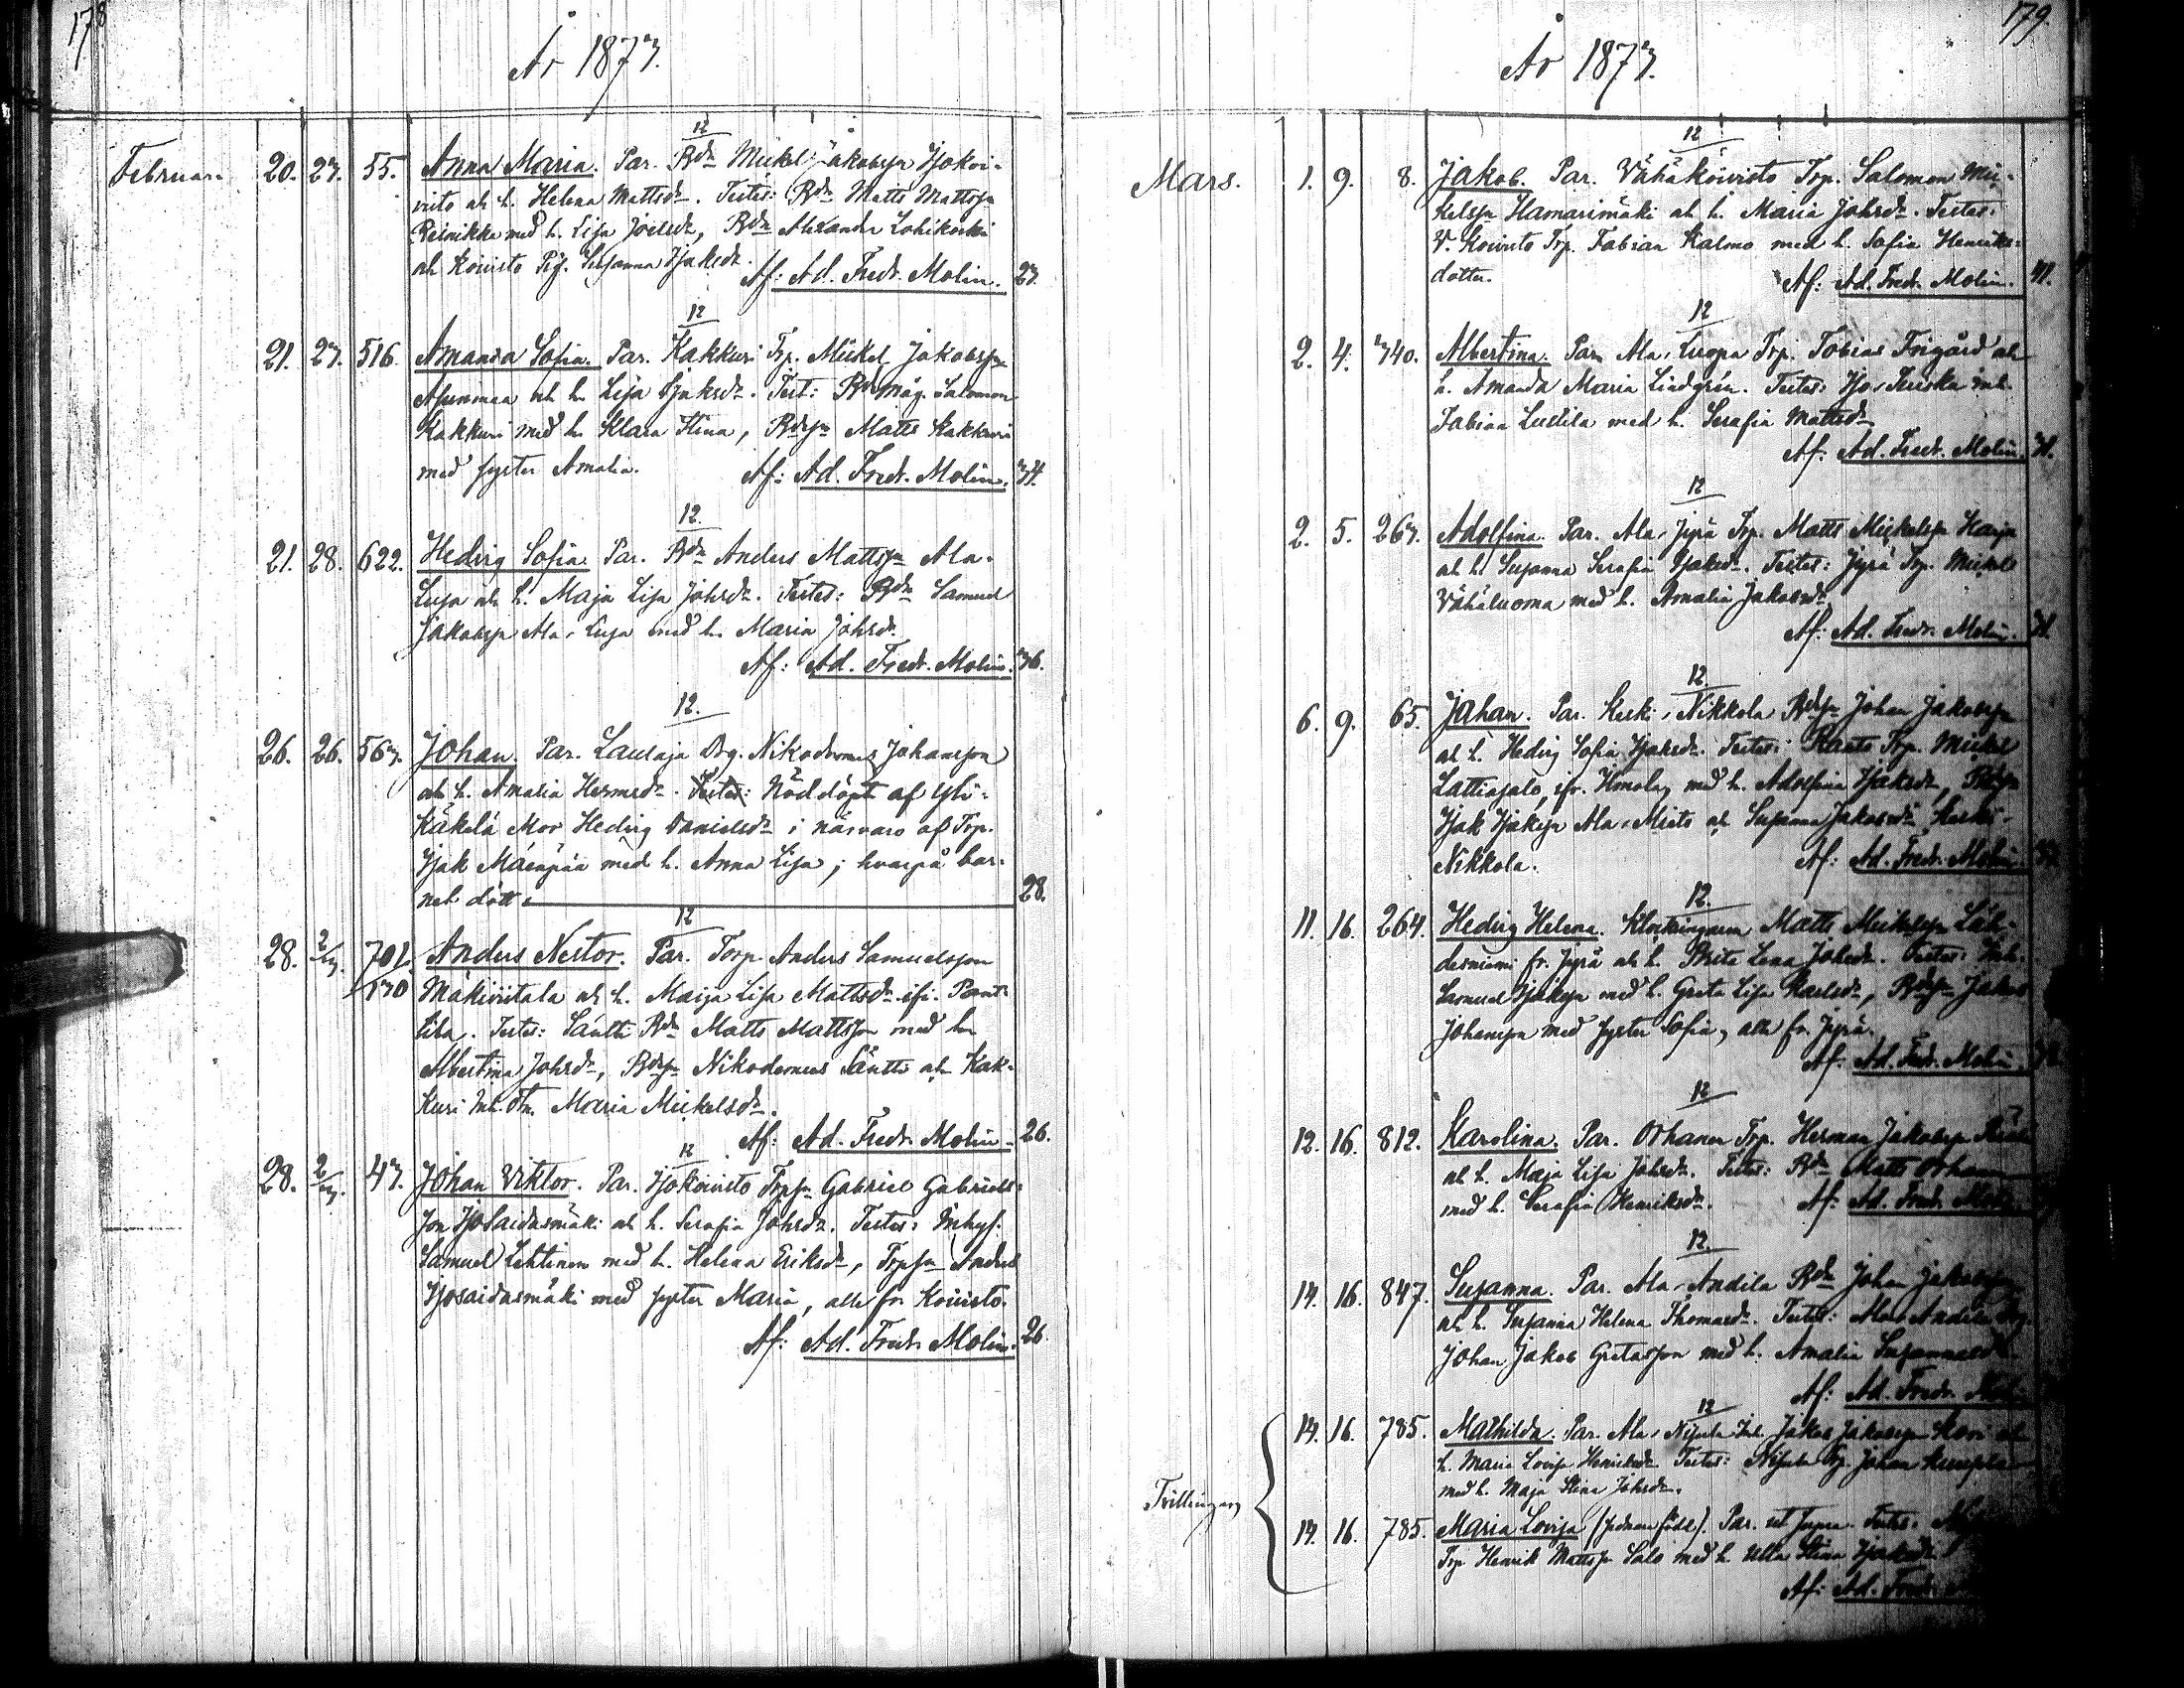 178
År 1873.
12
Februari 20. 23. 55. Anna Maria. Par. Bdn Mickel Jakobspn Isokoi-
visto och h. Helena Mattsdr. Testes: Bdn Matts Mattspn
Reinikka med h. Lisa Joelsdr, Bdn Alexander Lohikoski
och Koivisto Pig. Susanna Isaksdr.
Af: Ad. Fredr. Molin. 23.
12
21. 23. 516. Amanda Sofia. Par. Kakkuri Trp. Mickel Jakobspn
och h. Lisa Isaksdr. Test: Bdmåg. Salomon
Kakkuri med h. Klara Stina, Bdspn Matts Kakkuri
med syster Amalia.
Af: Ad. Fredr. Molin. 34.
12.
21. 28. 622. Hedvig Sofia. Par. Bdn Anders Mattspn Ala-
Luja och h. Maja Lisa Johsdr. Testes: Bdn Samuel
Jakobspn Ala-Luja med h. Maria Johsdr.
Af: Ad. Fredr. Molin. 36.
12.
26. 26. 563. Johan. Par. Laulaja Drg. Nikodemus Johansson
och h. Amalia Hermsdr. Testes: Nöddöpt af Yli-
Käkelä Mor Hedvig Danielsdr i närvaro af Trp.
Isak Mäenpää med h. Anna Lisa; hvarpå bar-
net dött. 28.
12
28. 2/3. 701. Anders Nestor. Par. Torp. Anders Samuelsson
170 Mäkiviitala och h. Maija Lisa Mattsdr ifr. Pent-
tila. Testes: Säntti Bdn Matts Mattsson med h.
Albertina Johsdr, Bdspn Nikodemus Säntti och Kak-
kuri Inh. Maria Mickelsdr.
Af: Ad. Fredr. Molin. 26.
12
28. 2/3. 43. Johan Viktor. Par. Isokoivisto Trpspn Gabriel Gabriels-
son Isosaidasmäki och h. Serafia Johsdr. Testes: Inhys.
Samuel Lehtinen med h. Helena Eriksdr, Trpspn Anders
Isosaidasmäki med syster Maria, alla fr. Koivisto.
Af: Ad. Fredr. Molin. 26.
179.
År 1873.
12
Mars. 1. 9. 8. Jakob. Par. Vähäkoivisto Trp. Salomon Mic-
kelspn Hamarimäki och h. Maria Johsdr. Testes:
V. Koivisto Trp. Fabian Kalmo med h. Sofia Henriks-
dotter. Af: Ad. Fredr. Molin. 41.
12
2. 4. 340. Albertina. Par. Ala-Luopa Trp. Tobias Frigård och
h. Amanda Maria Lindgrén. Testes: Iso- Inh.
Fabian Luttila med h. Serafia Mattsdr
Af: Ad. Fredr. Molin. 31.
12
2. 5. 263. Adolfina. Par. Ala-Jyrä Trp. Matts Mickelspn Harja
och h. Susanna Serafia Isaksdr. Testes: Jyrä Trp. Mickel
Vähäluoma med h. Amalia Jakobsdr.
Af: Ad. Fredr. Molin.
12.
6. 9. 65. Johan. Par. Keski-Nikkola Bdspn Johan Jakobspn
och h. Hedvig Sofia Isaksdr. Testes: Trp. Mickel
Lattiasalo, ifr. Ilmola, med h. Adolfina Isaksdr, Bdspn
Isak Isakspn Ala-Mieto och Susanna Jakobsdr Keski-
Nikkola. Af: Ad. Fredr. Molin.
12.
11. 16. 264. Hedvig Helena. Klockringaren Matts Mickelspn Läh-
desniemi fr. Jyrä och h. Brita Lena Johsdr. Testes: Inh.
Samuel Isakspn med h. Greta Lisa Karlsdr, Bdspn Jakob
Johanspn med syster Sofia, alla fr. Jyrä.
Af: Ad. Fredr. Molin.
12
12. 16. 812. Karolina. Par. Orhanen Trp. Herman Jakobspn
och h. Maja Lisa Johsdr. Testes: Bdn Matts Orhanen
med h. Serafia Henriksdr. Af: Ad. Fredr. Molin.
12.
14. 16. 847. Susanna. Par. Ala-Andila Bdn Johan Jakobspn
och h. Susanna Helena Thomasdr. Testes: Ala-Andila
Johan Jakob Gretasson med h. Amalia Susannasdr
Af: Ad. Fredr. Molin
12
14. 16. 785. Mathilda. Par. Ala-Nisula Inh. Jakob Jakobspn och
h. Maria Lovisa Henriksdr. Testes: Nisula Trp. Johan
med h. Maja Stina Johsdr.
Trillingar
14. 16. 785. Maria Lovisa (sednare född). Par. ut supra. Testes:
Trp. Henrik Mattspn Salo med h. Ulla Stina Isaksdr.
Af: Ad. Fredr.